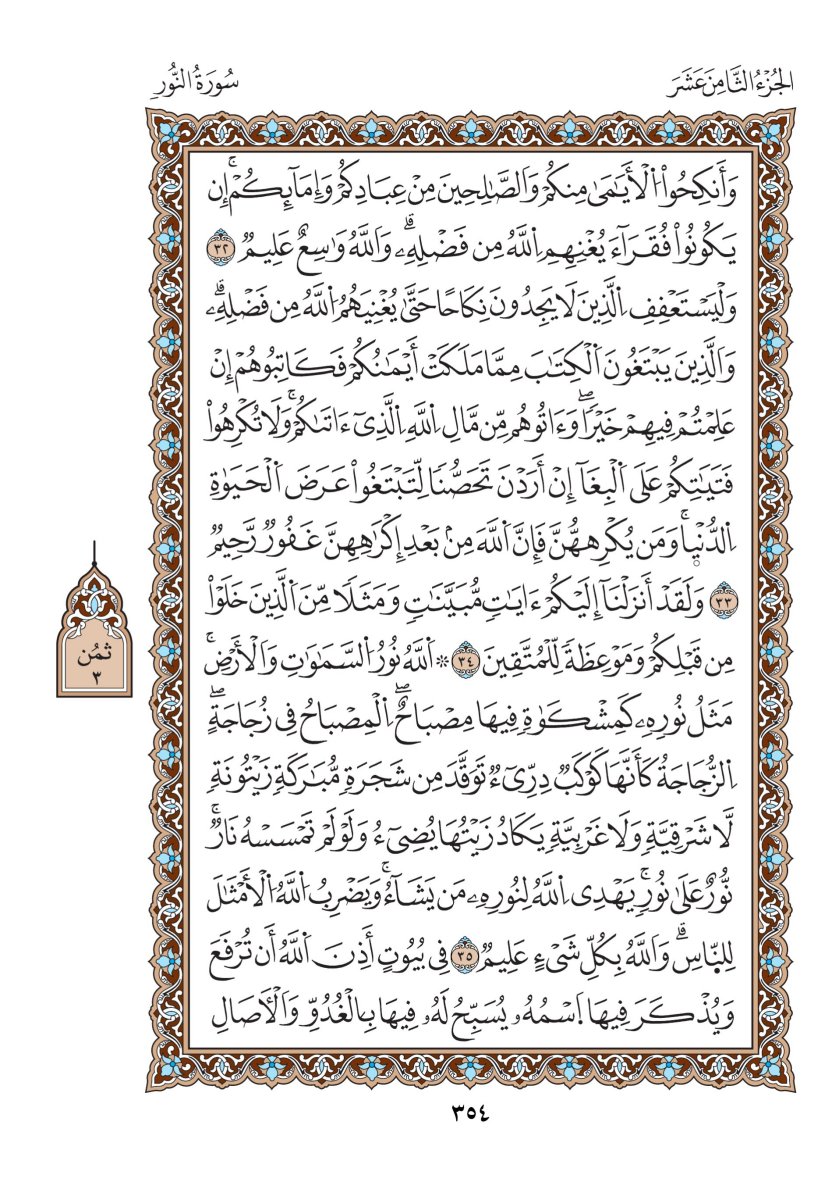 الجُزْءُ الثَّامِنَ عَشَرَ
سُورَةُ النُّورِ
وَأَنكِحُواْ اُ۬لْأَيَٰمَىٰ مِنكُمْ وَالصَّٰلِحِينَ مِنْ عِبَادِكُمْ وَإِمَآئِكُمْۚ إِن
يَكُونُواْ فُقَرَآءَ يُغْنِهِمِ اِ۬للَّهُ مِن فَضْلِهِۦۗ وَاللَّهُ وَٰسِعٌ عَلِيمٞ ٣٢
وَلْيَسْتَعْفِفِ اِ۬لَّذِينَ لَا يَجِدُونَ نِكَاحًا حَتَّىٰ يُغْنِيَهُمُ اُ۬للَّهُ مِن فَضْلِهِۦۗ
وَالَّذِينَ يَبْتَغُونَ اَ۬لْكِتَٰبَ مِمَّا مَلَكَتْ أَيْمَٰنُكُمْ فَكَاتِبُوهُمْ إِنْ
عَلِمْتُمْ فِيهِمْ خَيْرٗاۖ وَءَاتُوهُم مِّن مَّالِ اِ۬للَّهِ اِ۬لَّذِيٓ ءَاتَىٰكُمْۚ وَلَا تُكْرِهُواْ
فَتَيَٰتِكُمْ عَلَى اَ۬لْبِغَآ إِنْ أَرَدْنَ تَحَصُّنٗا لِّتَبْتَغُواْ عَرَضَ اَ۬لْحَيَوٰةِ
اِ۬لدُّنْيٜاۚ وَمَن يُكْرِههُّنَّ فَإِنَّ اَ۬للَّهَ مِنۢ بَعْدِ إِكْرَٰهِهِنَّ غَفُورٞ رَّحِيمٞ
٣٣ وَلَقَدْ أَنزَلْنَآ إِلَيْكُمُۥ ءَايَٰتٖ مُّبَيَّنَٰتٖ وَمَثَلٗا مِّنَ اَ۬لَّذِينَ خَلَوْاْ
مِن قَبْلِكُمْ وَمَوْعِظَةٗ لِّلْمُتَّقِينَ ٣٤ ۞ اَ۬للَّهُ نُورُ اُ۬لسَّمَٰوَٰتِ وَالْأَرْضِۚ
مَثَلُ نُورِهِۦ كَمِشْكَوٰةٖ فِيهَا مِصْبَاحٌۖ اِ۬لْمِصْبَاحُ فِي زُجَاجَةٍۖ
اِ۬لزُّجَاجَةُ كَأَنَّهَا كَوْكَبٞ دِرِّيٓءٞ تَوَقَّدَ مِن شَجَرَةٖ مُّبَٰرَكَةٖ زَيْتُونَةٖ
لَّا شَرْقِيَّةٖ وَلَا غَرْبِيَّةٖ يَكَادُ زَيْتُهَا يُضِيٓءُ وَلَوْ لَمْ تَمْسَسْهُ نَارٞۚ
نُّورٌ عَلَىٰ نُورٖۚ يَهْدِي اِ۬للَّهُ لِنُورِهِۦ مَن يَشَآءُۚ وَيَضْرِبُ اُ۬للَّهُ اُ۬لْأَمْثَٰلَ
لِلنَّاسِۗ وَاللَّهُ بِكُلِّ شَيْءٍ عَلِيمٞ ٣٥ فِي بُيُوتٍ أَذِنَ اَ۬للَّهُ أَن تُرْفَعَ
وَيُذْكَرَ فِيهَا اَ۪سْمُهُۥ يُسَبِّحُ لَهُۥ فِيهَا بِالْغُدُوِّ وَالْأٓصَالِ
ثمُن
٣
٣٥٤